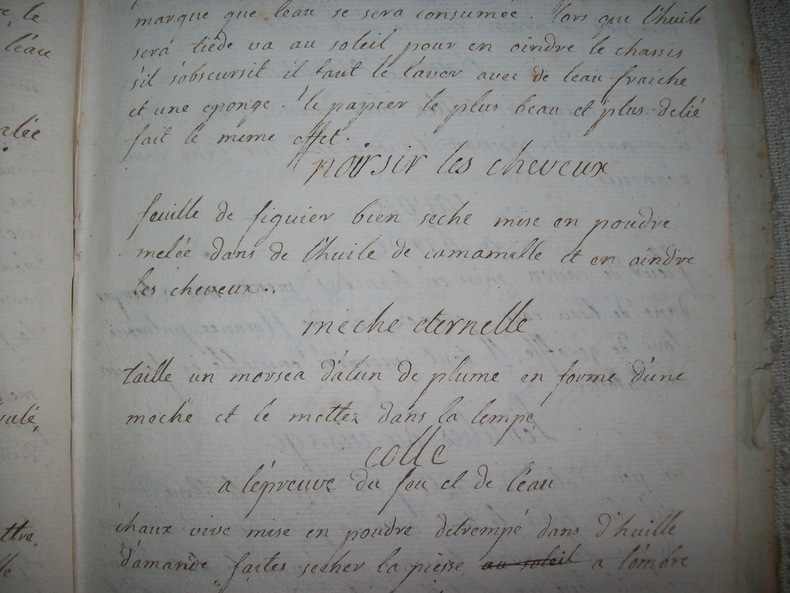 le
marque que leau se sera consumée. Lors que l'huile
leau
sera tiède va au soleil pour en oindre le chassis
s'il s'obscursit il faut le laver avec de leau fraiche
et une eponge. le papier le plus beau et plus delié
alée
fait le meme effet.
noirsir les cheveux
feuille de figuier bien seche mise en poudre
melée dans de l'huile de camamille et en oindre
les cheveux..
meche eternelle
taille un morsea d'alun de plume en forme d'une
moche et le mettez dans la lempe
ulé,
colle
a l'épreuve du feu et de l'eau
chaux vive mise en poudre detrempé dans d'huille
ttre
d'amande faites secher la piesse au soleil a l'ombre